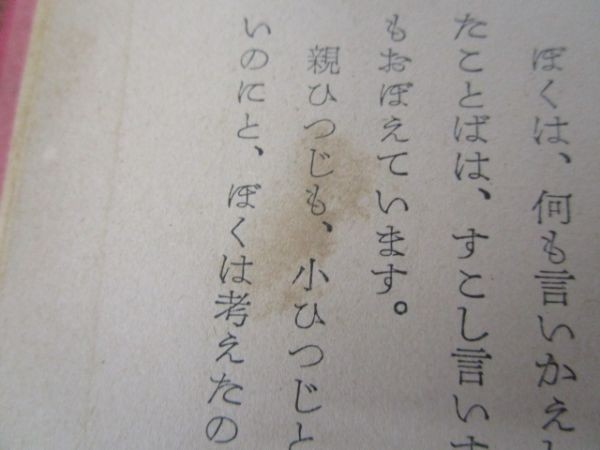 ぼくは、何も言いかえ
たことばは、すこし言いす
もおぼえています。
親ひつじも、小ひつじと
いのにと、ぼくは考えたの